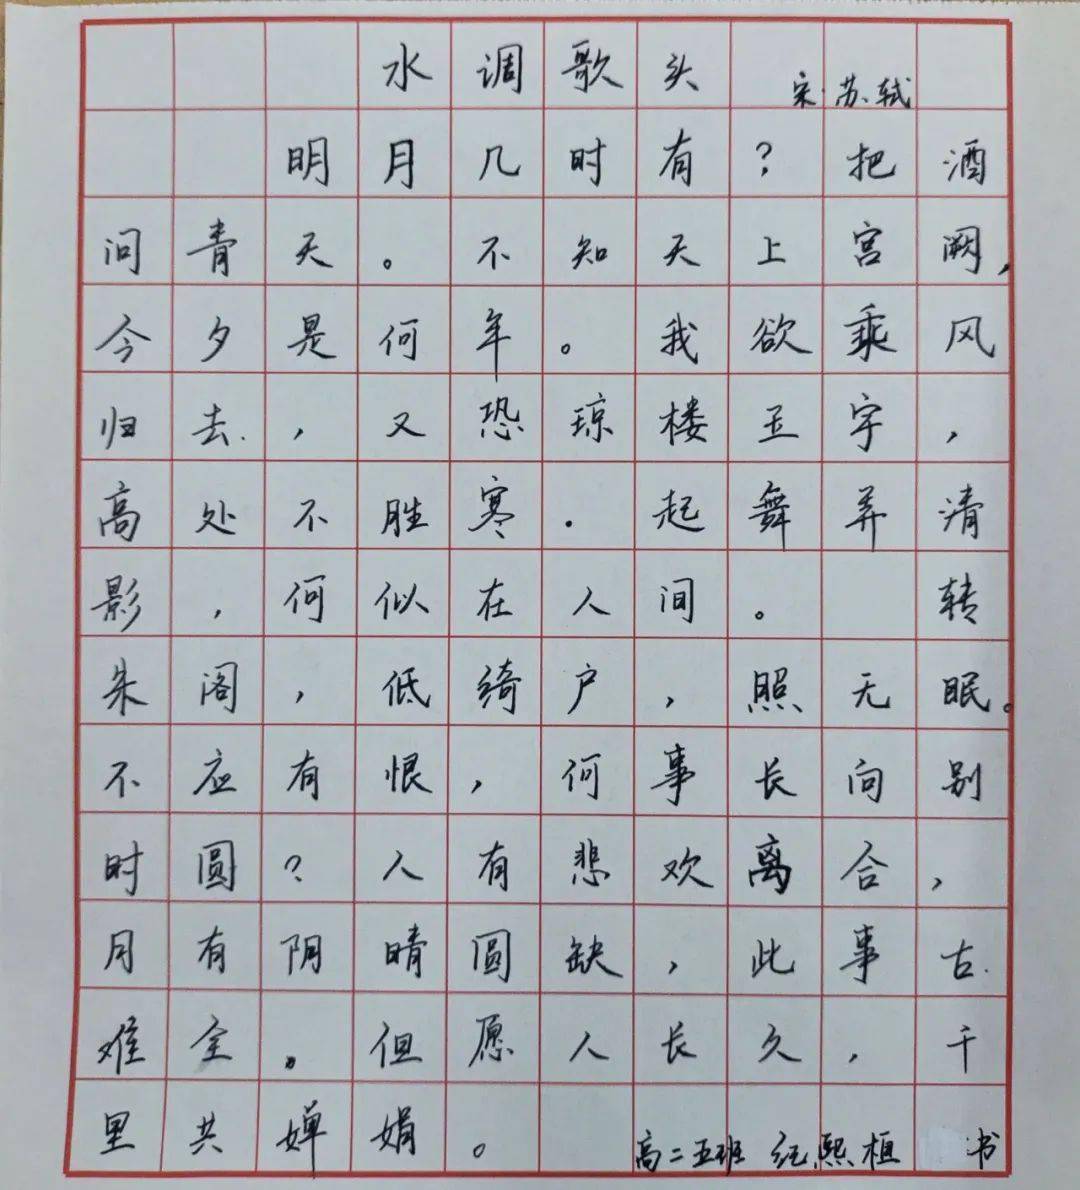 水调歌头 宋·苏轼
明月几时有?把酒
问青天。不知天上宫阙,
今夕是何年。我欲乘风
归去,又恐琼楼玉宇,
高处不胜寒.起舞弄清
影,何似在人间。 转
朱阁,低绮户,照无眠。
不应有恨,何事长向别
时圆?人有悲欢离合,
月有阴晴圆缺,此事古
难全。但愿人长久,千
里共婵娟。
高二五班 纪熙桓 书